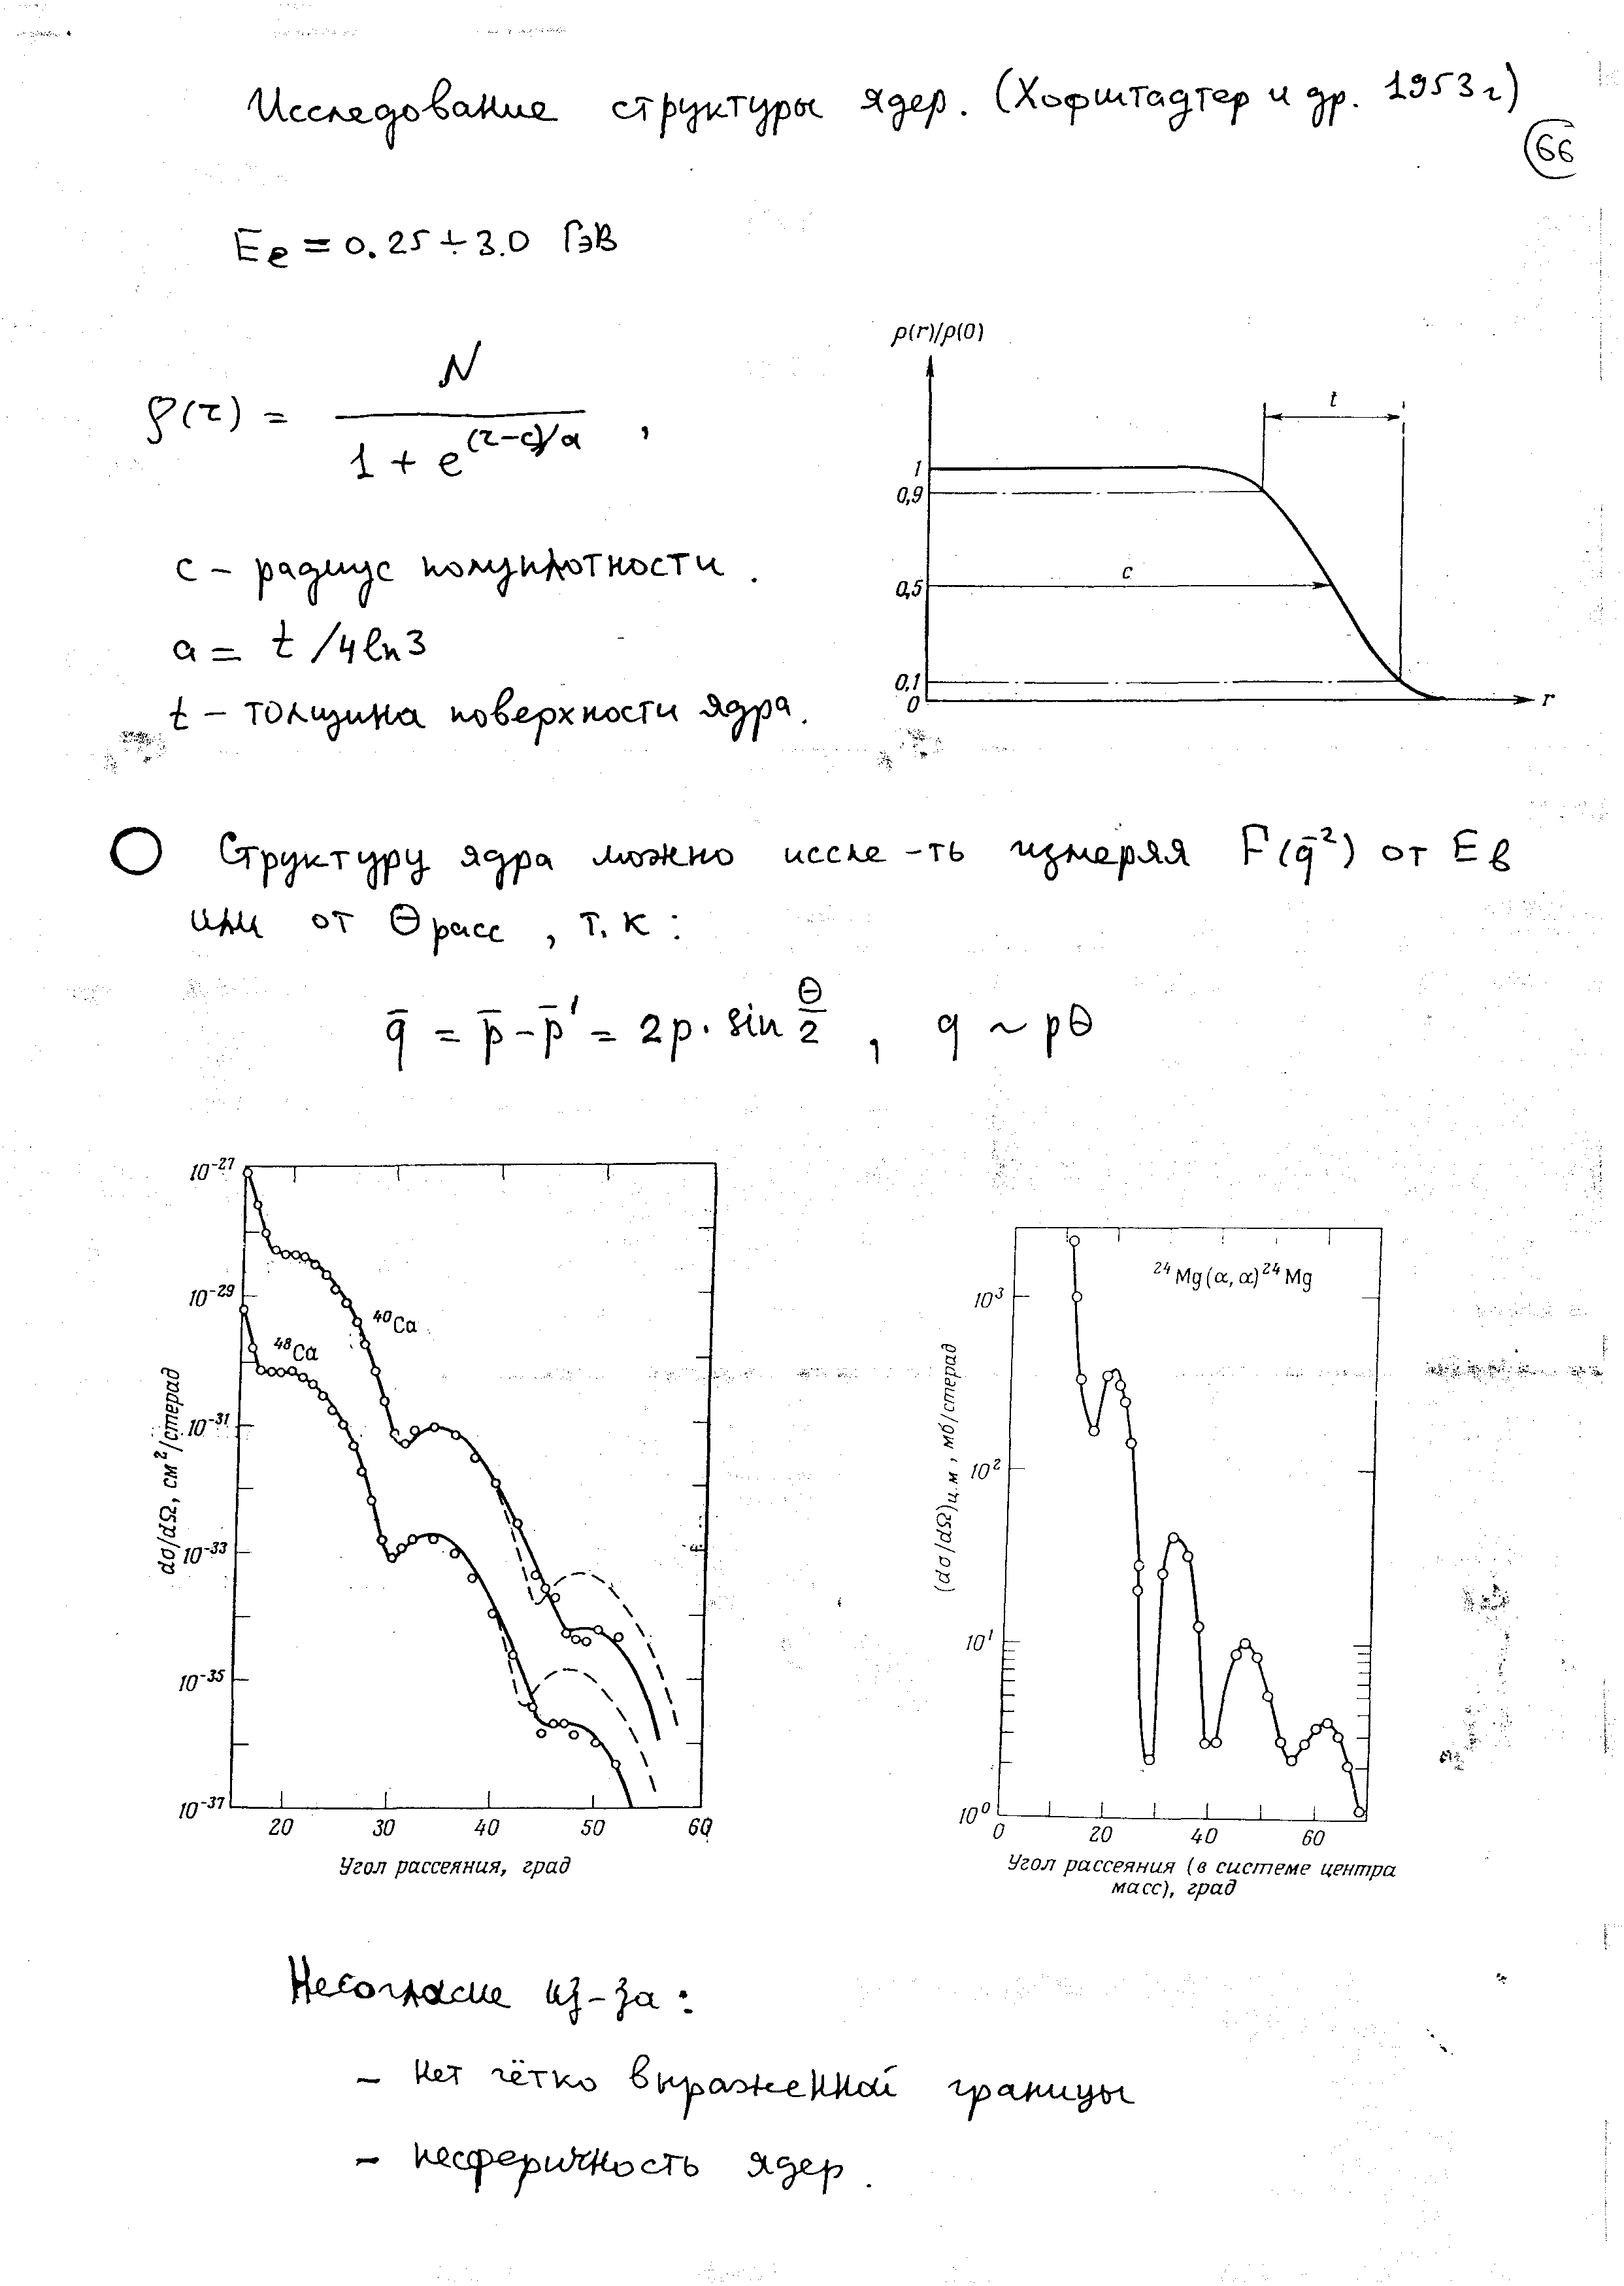 Исследование структуры ядер. (Хофштадтер и др. 1953г)
66
Ee = 0.25 ÷ 3.0 ГэВ
ρ(r) = N / (1 + e^((r-c)/a)) ,
c – радиус полуплотности.
a = t /4ln3
t – толщина поверхности ядра.
ρ(r)/ρ(0)
t
1
0,9
c
0,5
0,1
0
r
Структуру ядра можно иссле-ть измеряя F(q̄²) от E в
или от Θрасс , т.к :
q̄ = p̄ – p̄' = 2p · sin Θ/2 , q ~ pΘ
10⁻²⁷
10⁻²⁹
10⁻³¹
10⁻³³
10⁻³⁵
10⁻³⁷
dσ/dΩ, см²/стерад
⁴⁰Ca
⁴⁸Ca
20 30 40 50 60
Угол рассеяния, град
²⁴Mg(α, α)²⁴Mg
10³
10²
10¹
10⁰
(dσ/dΩ)ц.м, мб/стерад
0 20 40 60
Угол рассеяния (в системе центра
масс), град
Несогласие из-за :
– нет чётко выраженной границы
– несферичность ядер.